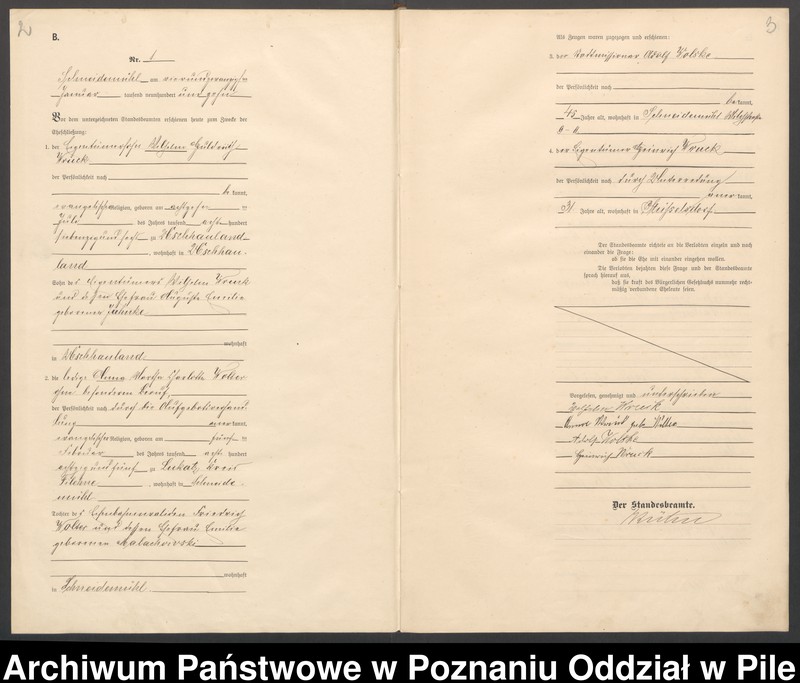 2
B.
Nr. 1
Schneidemühl am vierundzwanzigsten
Januar tausend neunhundert und zehn
Vor dem unterzeichneten Standesbeamten erschienen heute zum Zwecke der
Eheschließung:
1. der Eigentümersohn Wilhelm
der Persönlichkeit nach
be kannt,
evangelischer Religion, geboren am
Juli des Jahres tausend acht hundert
zu Uschhauland
, wohnhaft in Uschhau-
land
Sohn des Eigentümers Wilhelm
und dessen Ehefrau Auguste Emilie
geborener
wohnhaft
in Uschhauland
2. die ledige Anna Martha Charlotte Wolter
ohne besonderen Beruf,
der Persönlichkeit nach durch die Aufgebotsverhand-
lung aner kannt,
evangelischer Religion, geboren am fünften
Februar des Jahres tausend acht hundert
achtzig und fünf zu Lukatz, Kreis
Filehne, wohnhaft in Schneide-
mühl
Tochter des Eisenbahninvaliden Friedrich
Wolter und dessen Ehefrau Emilie
geborenen
wohnhaft
in Schneidemühl
3
Als Zeugen waren zugezogen und erschienen:
3. der Stadtmissionar Adolf
der Persönlichkeit nach
be kannt,
45 Jahre alt, wohnhaft in Schneidemühl
4. der Eigentümer Heinrich
der Persönlichkeit nach durch Unterredung
aner kannt,
31 Jahre alt, wohnhaft in
Der Standesbeamte richtete an die Verlobten einzeln und nach
einander die Frage:
ob sie die Ehe mit einander eingehen wollen.
Die Verlobten bejahten diese Frage und der Standesbeamte
sprach hierauf aus,
daß sie kraft des Bürgerlichen Gesetzbuchs nunmehr recht-
mäßig verbundene Eheleute seien.
Vorgelesen, genehmigt und unterschrieben
Wilhelm
Anna geb.
Adolf
Heinrich
Der Standesbeamte.
Archiwum Państwowe w Poznaniu Oddział w Pile